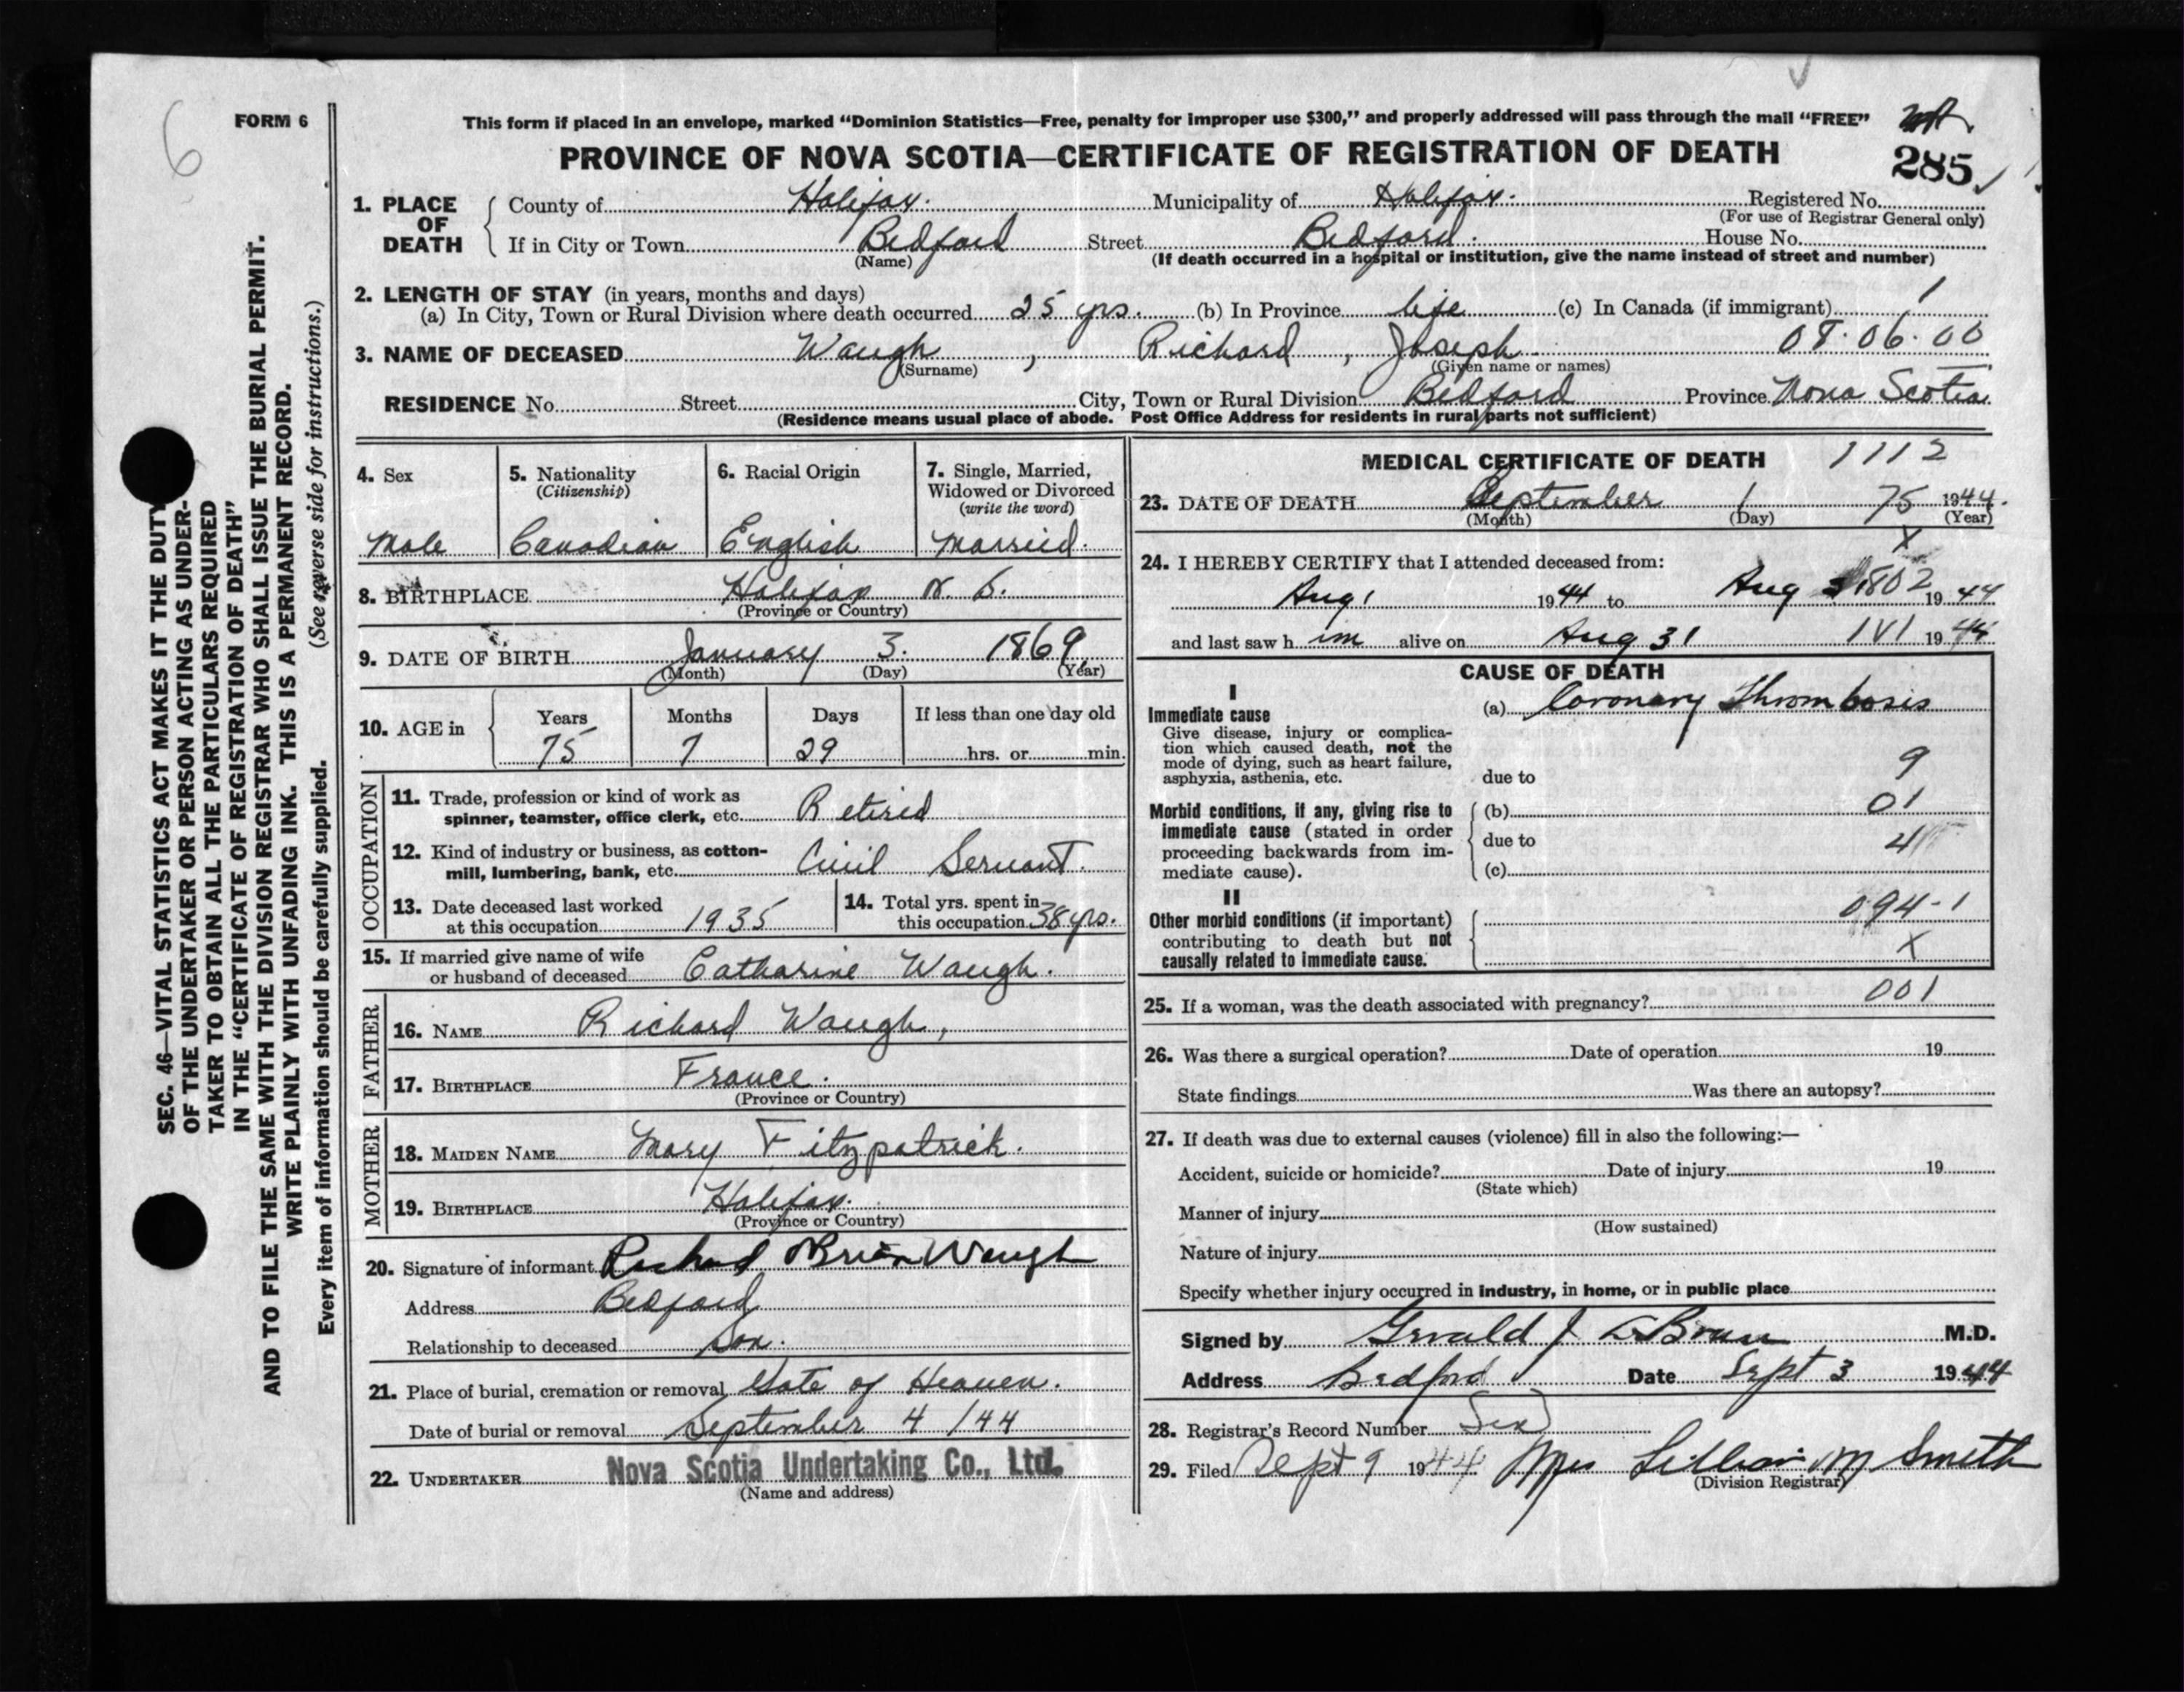 6
FORM 6
This form if placed in an envelope, marked “Dominion Statistics—Free, penalty for improper use $300,” and properly addressed will pass through the mail “FREE”
PROVINCE OF NOVA SCOTIA—CERTIFICATE OF REGISTRATION OF DEATH
285
1. PLACE OF DEATH
County of Halifax. Municipality of Halifax. Registered No.
(For use of Registrar General only)
If in City or Town Bedford Street Bedford. House No.
(Name) (If death occurred in a hospital or institution, give the name instead of street and number)
2. LENGTH OF STAY (in years, months and days)
(a) In City, Town or Rural Division where death occurred 25 yrs. (b) In Province life (c) In Canada (if immigrant) 1
3. NAME OF DECEASED Waugh, Richard, Joseph 08·06·00
(Surname) (Given name or names)
RESIDENCE No. Street City, Town or Rural Division Bedford Province Nova Scotia
(Residence means usual place of abode. Post Office Address for residents in rural parts not sufficient)
4. Sex
Male
5. Nationality
(Citizenship)
Canadian
6. Racial Origin
English
7. Single, Married,
Widowed or Divorced
(write the word)
Married.
8. BIRTHPLACE Halifax N.S.
(Province or Country)
9. DATE OF BIRTH January 3. 1869
(Month) (Day) (Year)
10. AGE in
Years Months Days If less than one day old
75 7 29 hrs. or min.
OCCUPATION
11. Trade, profession or kind of work as
spinner, teamster, office clerk, etc. Retired
12. Kind of industry or business, as cotton-
mill, lumbering, bank, etc. Civil Servant.
13. Date deceased last worked
at this occupation 1935
14. Total yrs. spent in
this occupation 38 yrs.
15. If married give name of wife
or husband of deceased Catharine Waugh.
FATHER
16. NAME Richard Waugh,
17. BIRTHPLACE France.
(Province or Country)
MOTHER
18. MAIDEN NAME Mary Fitzpatrick.
19. BIRTHPLACE Halifax.
(Province or Country)
20. Signature of informant Richard O'Brien Waugh
Address Bedford
Relationship to deceased Son.
21. Place of burial, cremation or removal Gate of Heaven.
Date of burial or removal September 4 /44
22. UNDERTAKER Nova Scotia Undertaking Co., Ltd.
(Name and address)
MEDICAL CERTIFICATE OF DEATH 1112
23. DATE OF DEATH September 1 75 1944.
(Month) (Day) (Year)
X
24. I HEREBY CERTIFY that I attended deceased from:
Aug 1 1944 to Aug 1944
and last saw him alive on Aug 31 1V1 1944
CAUSE OF DEATH
I
Immediate cause
Give disease, injury or complica-
tion which caused death, not the
mode of dying, such as heart failure,
asphyxia, asthenia, etc.
(a) Coronary Thrombosis
9
due to
Morbid conditions, if any, giving rise to
immediate cause (stated in order
proceeding backwards from im-
mediate cause).
(b) 01
due to 4
(c)
II
Other morbid conditions (if important)
contributing to death but not
causally related to immediate cause.
094-1
X
25. If a woman, was the death associated with pregnancy? 001
26. Was there a surgical operation? Date of operation 19
State findings Was there an autopsy?
27. If death was due to external causes (violence) fill in also the following:—
Accident, suicide or homicide? Date of injury 19
(State which)
Manner of injury
(How sustained)
Nature of injury
Specify whether injury occurred in industry, in home, or in public place
Signed by Gerald J. M.D.
Address Bedford Date Sept 3 1944
28. Registrar's Record Number
29. Filed Sept 9 1944 Mrs Lillian M Smith
(Division Registrar)
SEC. 46—VITAL STATISTICS ACT MAKES IT THE DUTY
OF THE UNDERTAKER OR PERSON ACTING AS UNDER-
TAKER TO OBTAIN ALL THE PARTICULARS REQUIRED
IN THE “CERTIFICATE OF REGISTRATION OF DEATH”
AND TO FILE THE SAME WITH THE DIVISION REGISTRAR WHO SHALL ISSUE THE BURIAL PERMIT.
WRITE PLAINLY WITH UNFADING INK. THIS IS A PERMANENT RECORD.
Every item of information should be carefully supplied. (See reverse side for instructions.)